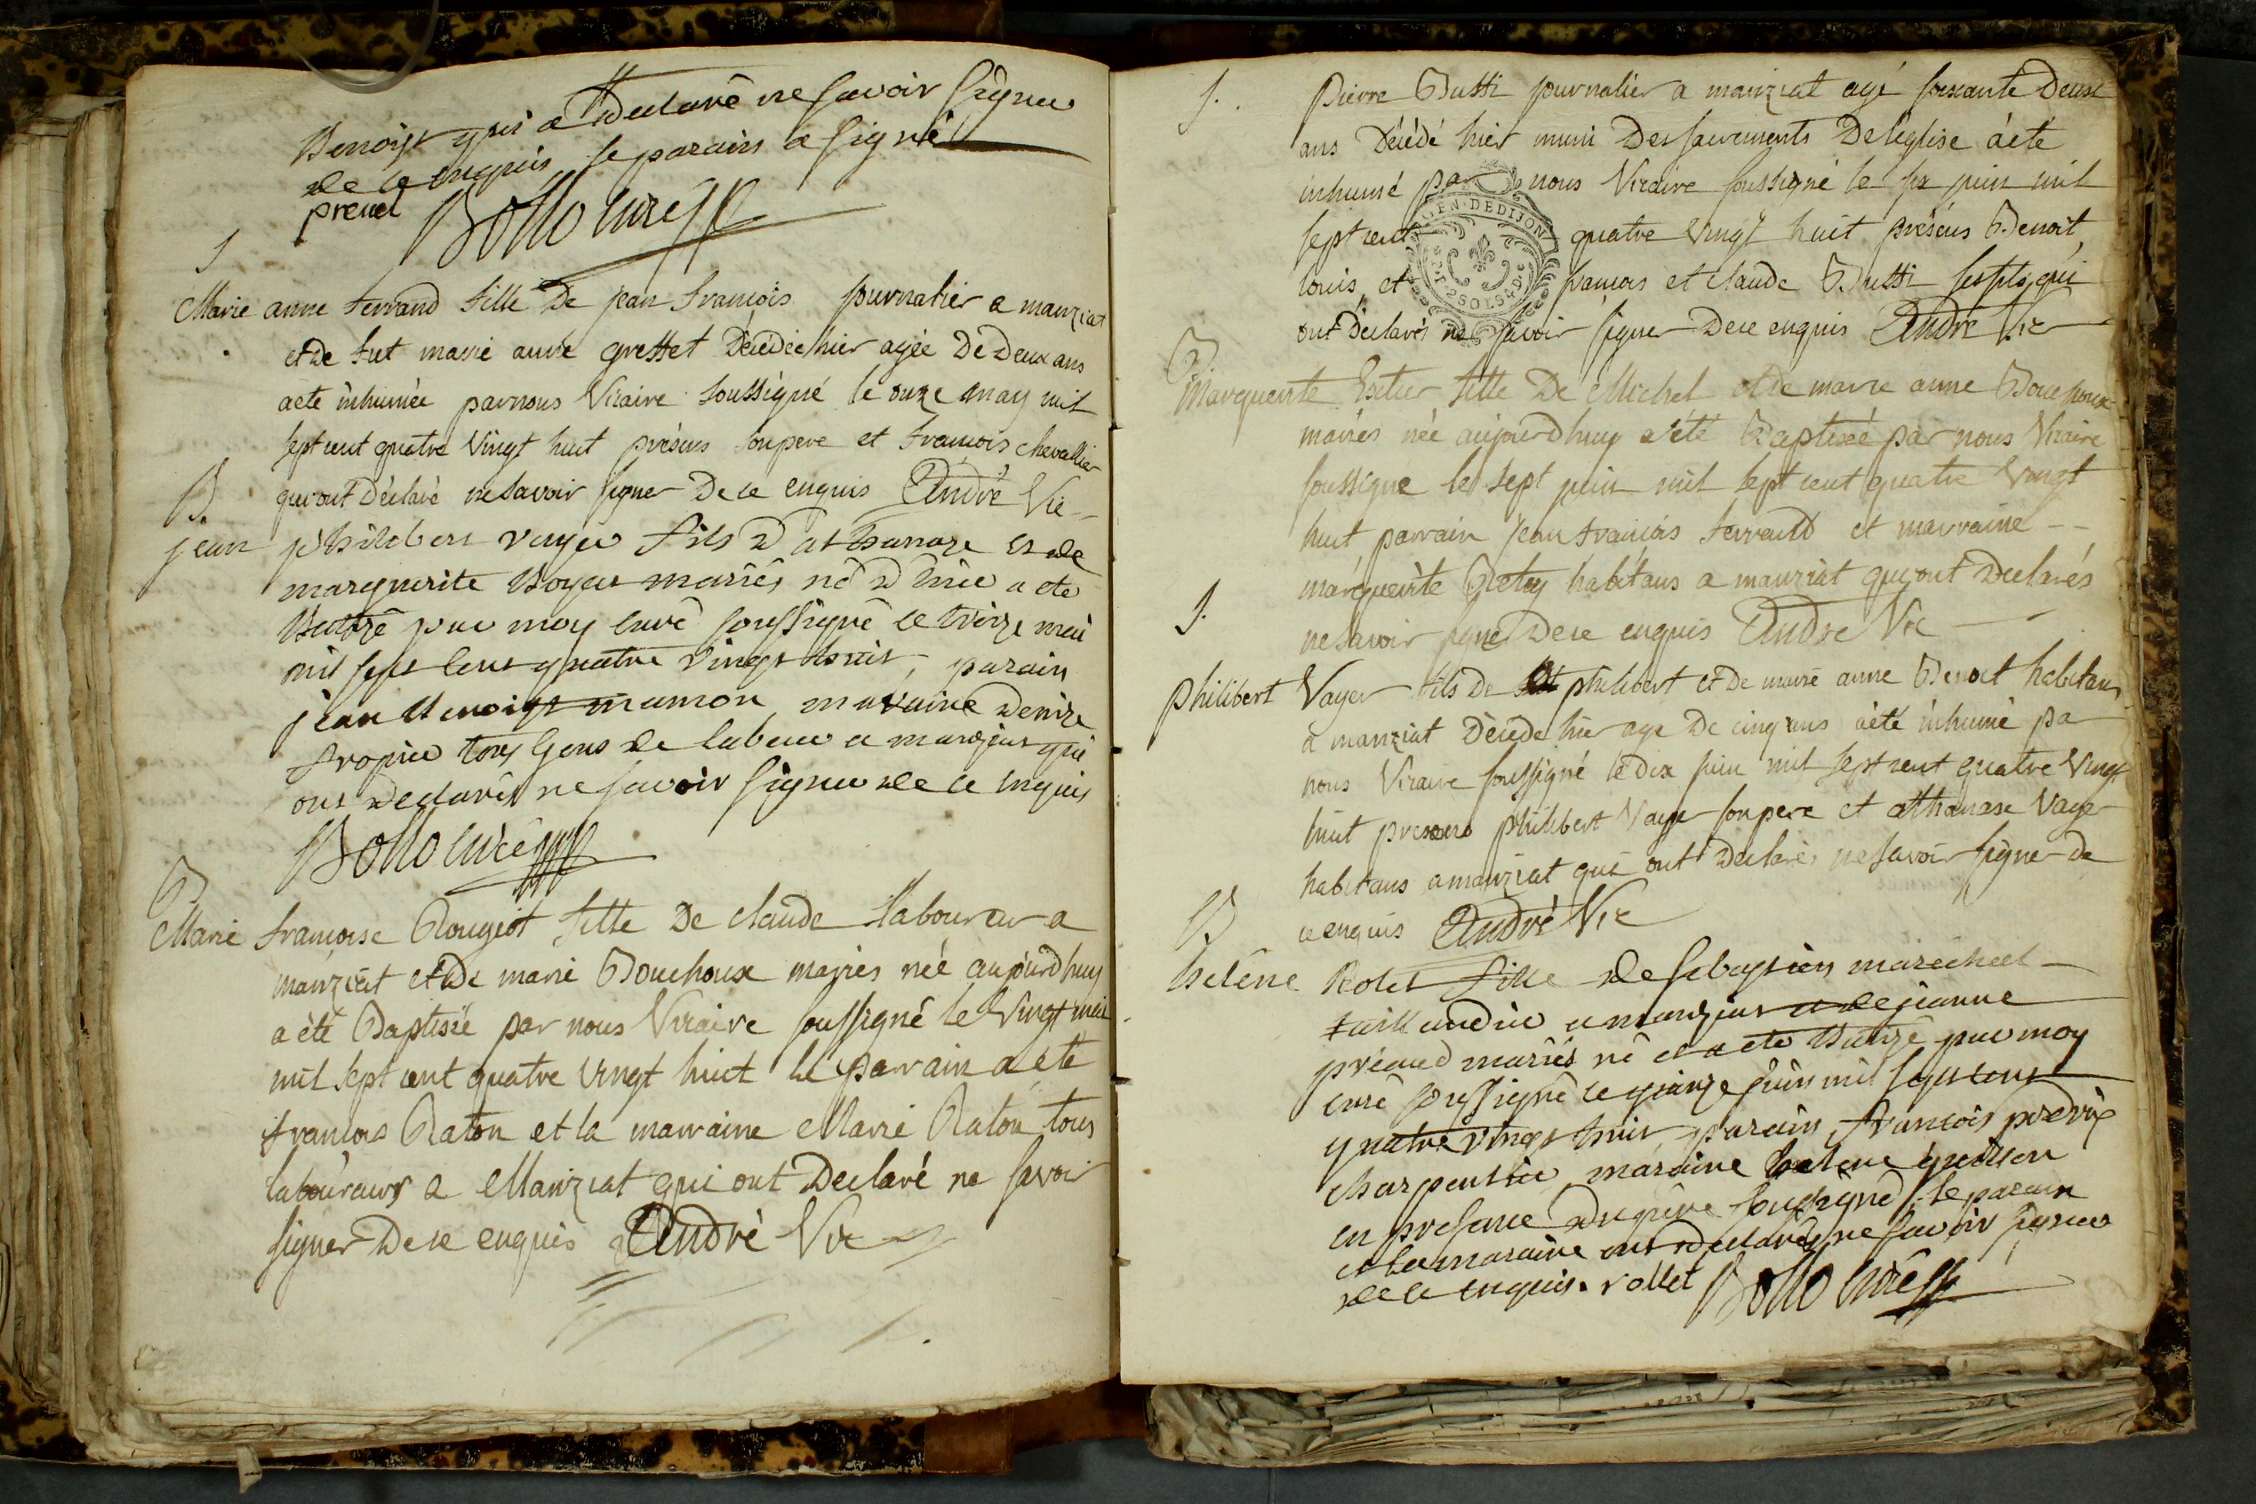 Benoist qui a declaré ne savoir signer
de ce enquis le parain a signé
preuel Bollo curé
S
Marie anne ferrand fille De jean francois journalier a manziat
et de fut marie anne gresset Décédée hier agée De Deux ans
a eté inhumée par nous Vicaire soussigné le onze may mil
sept cent quatre Vingt huit présens son pere et francois chevallier
qui ont Déclaré ne savoir signer De ce enquis André Vic
B.
jean philibert vayer fils d'athanaze et de
marguerite Boyer mariés né d'hier a eté
Batizé par moy curé soussigné le treize mai
mil sept cent quatre vingt huit, parain
jean Benoist mamon maraine Denize
tous gens de labeur a manziat qui
ont declarés ne savoir signer de ce enquis
Bollo curé
B
Marie francoise Rougeot fille De claude laboureur a
manziat et De marie Bouchoux mariés née aujourdhuy
a été Baptisée par nous Vicaire soussigné le Vingt mai
mil sept cent quatre vingt huit le parrain a eté
francois Raton et la marraine Marie Raton tous
laboureurs a Manziat qui ont Declaré ne savoir
signer De ce enquis André Vic
S.
Pierre Butti journalier a manziat agé soixante Deux
ans Décédé hier muni Des sacrements De l'eglise a eté
inhumé par nous Vicaire soussigné le six juin mil
sept cent quatre vingt huit présens Benoit,
louis, et francois et claude Butti ses fils, qui
ont Declarés ne savoir signer De ce enquis André Vic
GEN. DE DIJON
2 SOLS 4 D.
B
Marguerite fille De Michel et De marie anne Bouchoux
mariés née aujourdhuy a été Baptisée par nous Vicaire
soussigné le sept juin mil sept cent quatre Vingt
huit, parrain jean francois ferrand et marraine
marguerite Rety habitans a manziat qui ont Declarés
ne savoir signer De ce enquis André Vic
S.
Philibert Vayer fils De philibert et De marie anne Benoit habitans
a manziat Décédé hier age De cinq ans a eté inhumé pa
nous Vicaire soussigné le dix juin mil sept cent quatre Vingt
huit presens philibert Vayer son pere et athanase Vayer
habitans a manziat qui ont Declarés ne savoir signer de
ce enquis André Vic
B
helêne Rolet fille de sebastien maréchal
taillandier a manziat et de jeanne
préaud mariés né et a eté Batizé par moy
curé soussigné le quinze juin mil sept cent
quatre vingt huit, parain, francois
charpentier maraine helene
en presence du pére soussigné, le parain
et la maraine ont declarés ne savoir signer
de ce enquis. rollet Bollo curé